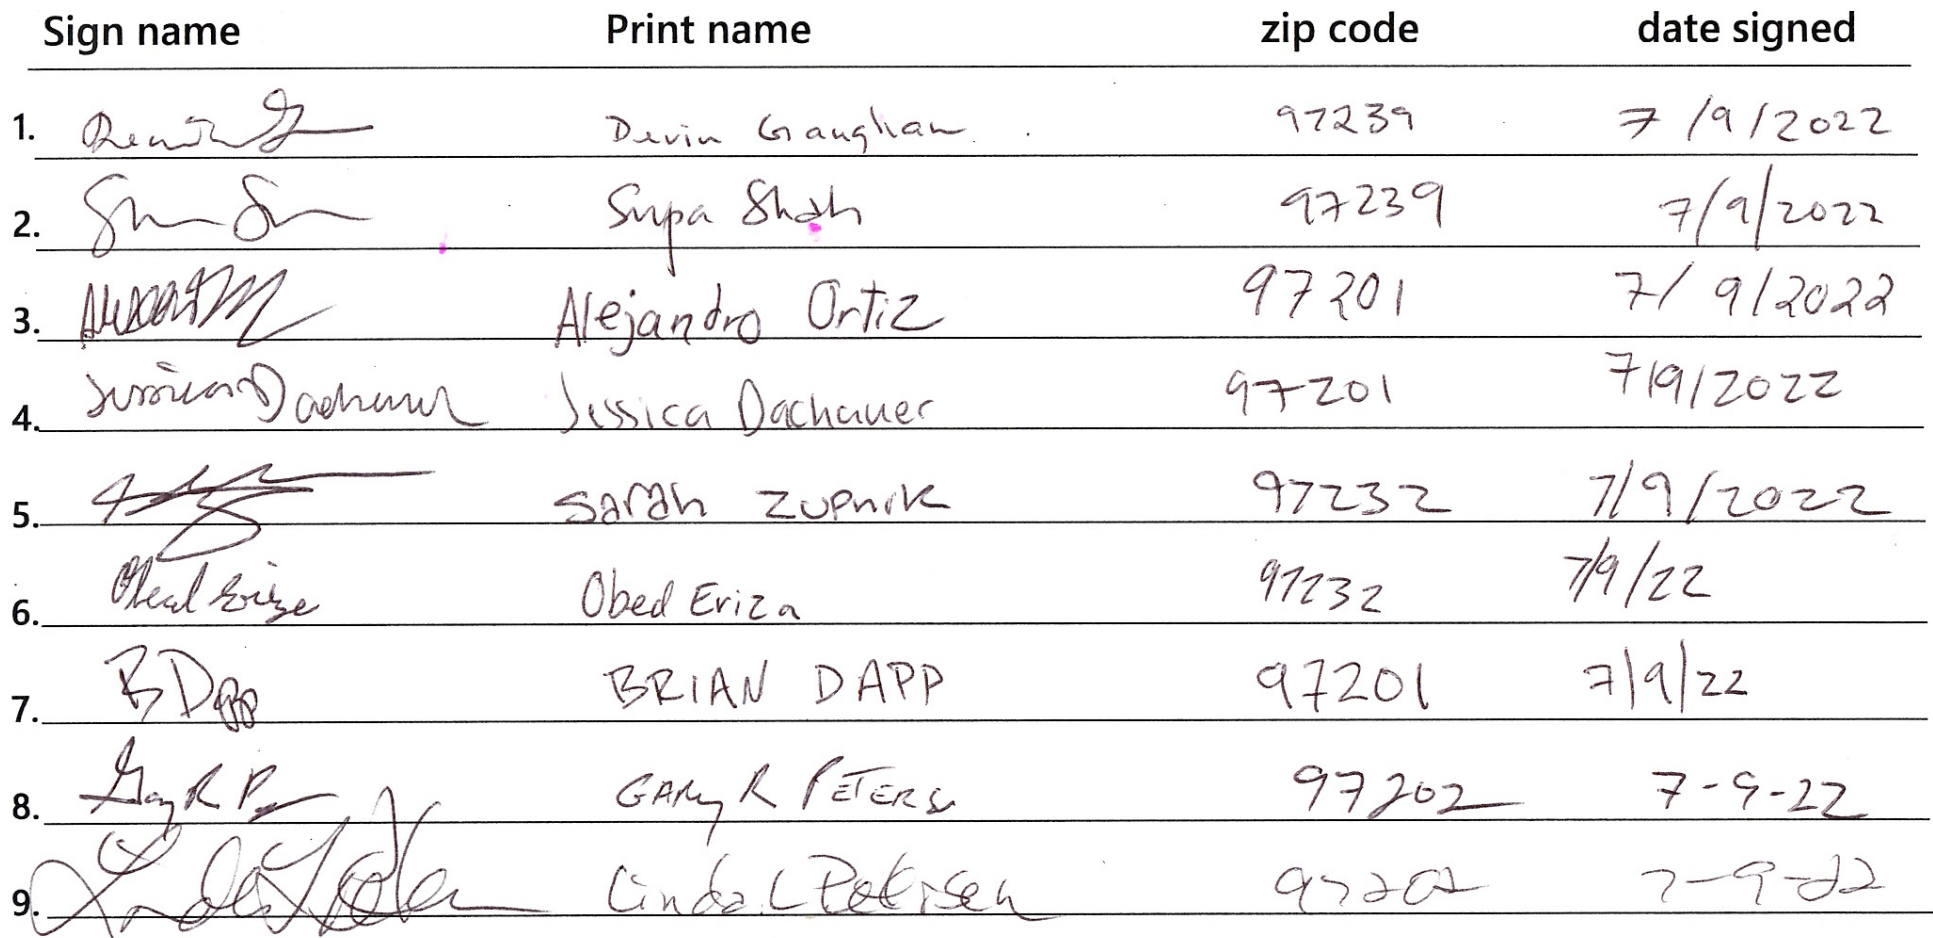 Sign name Print name zip code date signed
1. Devin Gaughan 97239 7/9/2022
2. Supa Shah 97239 7/9/2022
3. Alejandro Ortiz 97201 7/9/2022
4. Jessica Dachauer Jessica Dachauer 97201 7/9/2022
5. Sarah Zupnik 97232 7/9/2022
6. Obed Eriza Obed Eriza 97232 7/9/22
7. B Dapp BRIAN DAPP 97201 7/9/22
8. Gary R P GARY R 97202 7-9-22
9. Linda L Petersen 97202 7-9-22